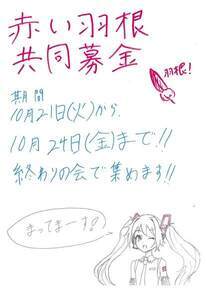 赤い羽根
共同募金
羽根!
期間
10月21日(火)から、
10月24日(金)まで!!
終わりの会で集めます!!
まってまーす!